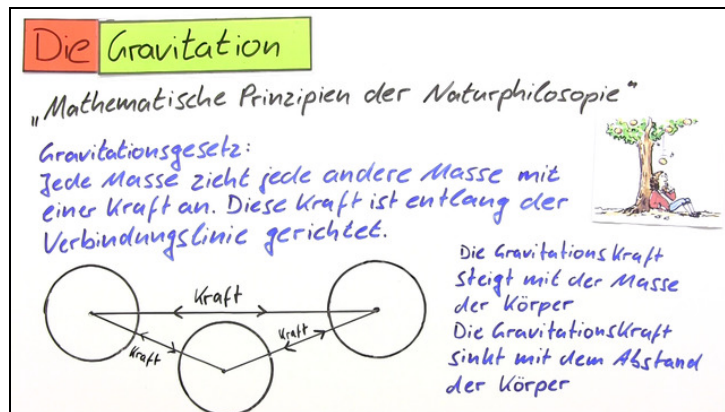 Die Gravitation
„Mathematische Prinzipien der Naturphilosopie“
Gravitationsgesetz:
Jede Masse zieht jede andere Masse mit
einer Kraft an. Diese Kraft ist entlang der
Verbindungslinie gerichtet.
Kraft
Kraft
Kraft
Die Gravitations Kraft
steigt mit der Masse
der Körper
Die Gravitationskraft
sinkt mit dem Abstand
der Körper